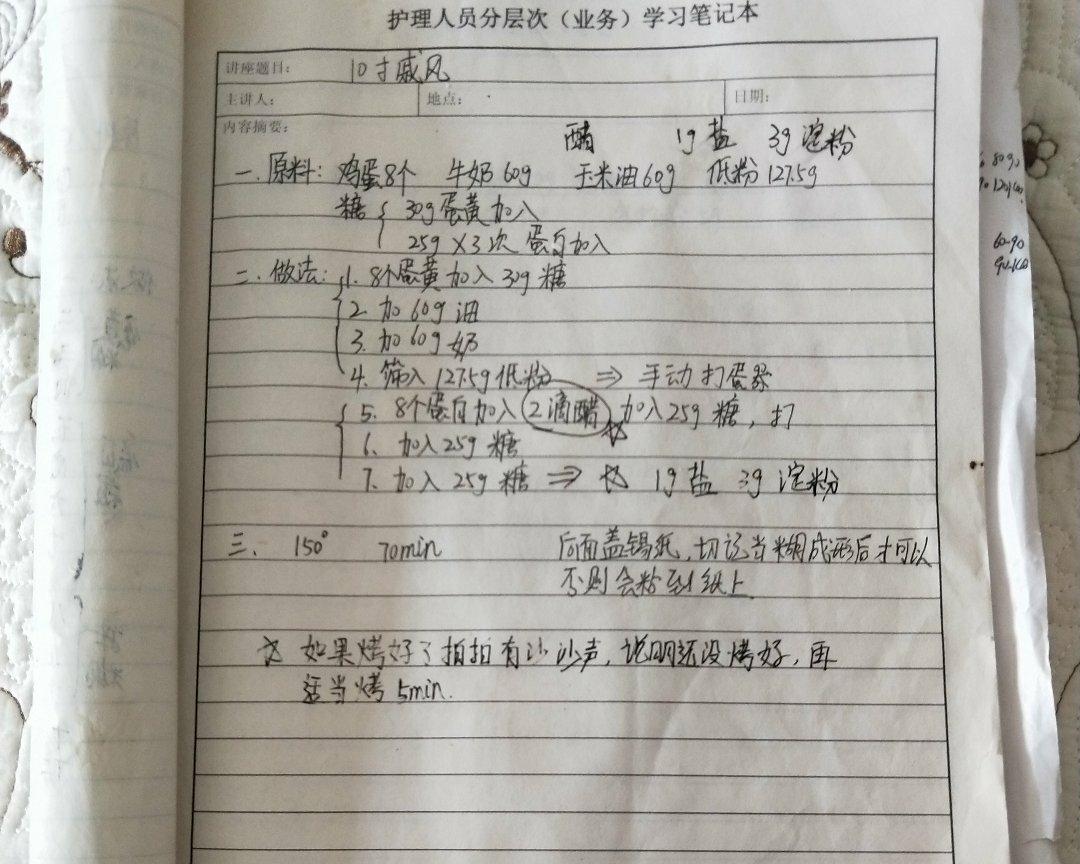 护理人员分层次（业务）学习笔记本
讲座题目： 10寸戚风
主讲人： 地点： 日期：
内容摘要：
醋 1g 盐 3g 淀粉
一.原料：鸡蛋8个 牛奶60g 玉米油60g 低粉127.5g
糖{ 30g蛋黄加入
25g×3次 蛋白加入
二.做法：1. 8个蛋黄加入30g糖
2. 加60g油
3. 加60g奶
4. 筛入127.5g低粉 ⇒ 手动打蛋器
5. 8个蛋白加入2滴醋 加入25g糖，打
6. 加入25g糖
7. 加入25g糖 ⇒ ☆ 1g盐 3g 淀粉
三、 150° 70min 后面盖锡纸，切记当糊成形后才可以
否则会粘到纸上
☆ 如果烤好了拍拍有沙沙声，说明还没烤好，再
适当烤5min.
60-90